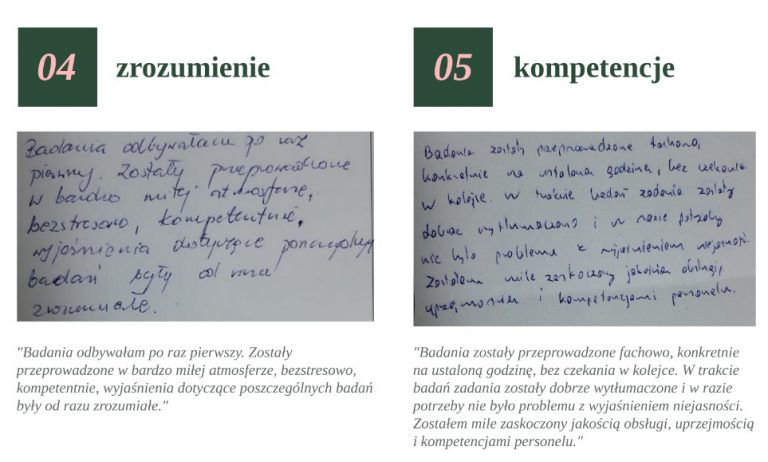 04
zrozumienie
Badania odbywałam po raz
pierwszy. Zostały przeprowadzone
w bardzo miłej atmosferze,
bezstresowo, kompetentnie,
wyjaśnienia dotyczące poszczególnych
badań były od razu
zrozumiałe.
"Badania odbywałam po raz pierwszy. Zostały
przeprowadzone w bardzo miłej atmosferze, bezstresowo,
kompetentnie, wyjaśnienia dotyczące poszczególnych badań
były od razu zrozumiałe."
05
kompetencje
Badania zostały przeprowadzone fachowo,
konkretnie na ustaloną godzinę, bez czekania
w kolejce. W trakcie badań zadania zostały
dobrze wytłumaczone i w razie potrzeby
nie było problemu z wyjaśnieniem niejasności.
Zostałem mile zaskoczony jakością obsługi,
uprzejmością i kompetencjami personelu.
"Badania zostały przeprowadzone fachowo, konkretnie
na ustaloną godzinę, bez czekania w kolejce. W trakcie
badań zadania zostały dobrze wytłumaczone i w razie
potrzeby nie było problemu z wyjaśnieniem niejasności.
Zostałem mile zaskoczony jakością obsługi, uprzejmością
i kompetencjami personelu."